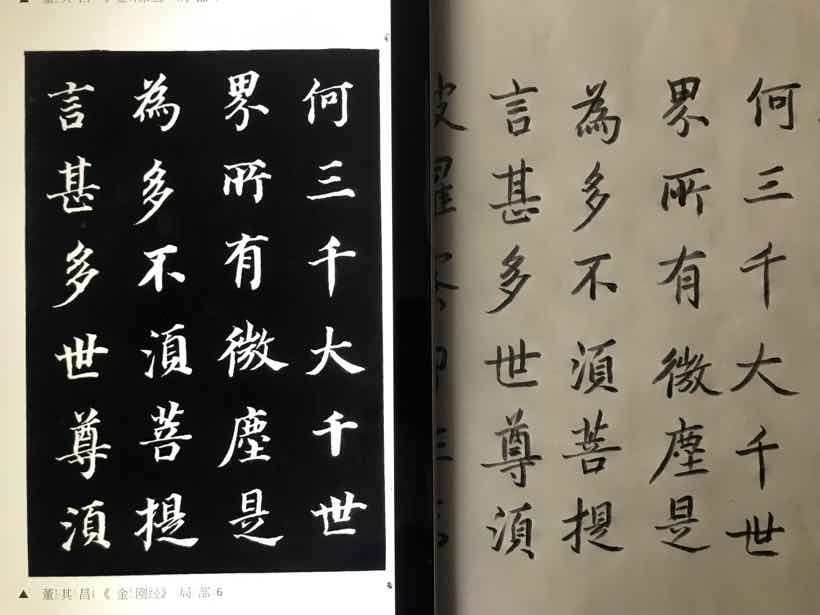 何三千大千世
界所有微塵是
為多不湏菩提
言甚多世尊湏
▲ 董其昌《金刚经》局部6
何三千大千世
界所有微塵是
為多不湏菩提
言甚多世尊湏